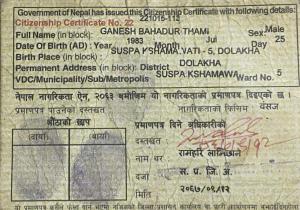 Government of Nepal has issued this Citizenship Certificate with following details:
Citizenship Certificate No. 22 221015-112
Full Name (in block): GANESH BAHADUR THAMI Sex: Male
Date Of Birth (AD) : Year 1983 Month Jul Day 25
Birth Place (in block) : SUSPA KSHAMAVATI - 5, DOLAKHA
Permanent Address (in block) : District DOLAKHA
VDC/Municipality/Sub/Metropolis SUSPA KSHAMAWA Ward No. 5
नेपाल नागरिकता ऐन, २०६३ बमोजिम यो प्रमाणपत्र दिइएको छ ।
प्रमाणपत्र पाउनेको दस्तखत नागरिकताको किसिम वंशज
औंठाको छाप प्रमाणपत्र दिने अधिकारीको
(दायाँ) (बायाँ) दस्तखत
नाम थर
दर्जा स. प्र. जि. अ.
मिति २०६७/०९/१२